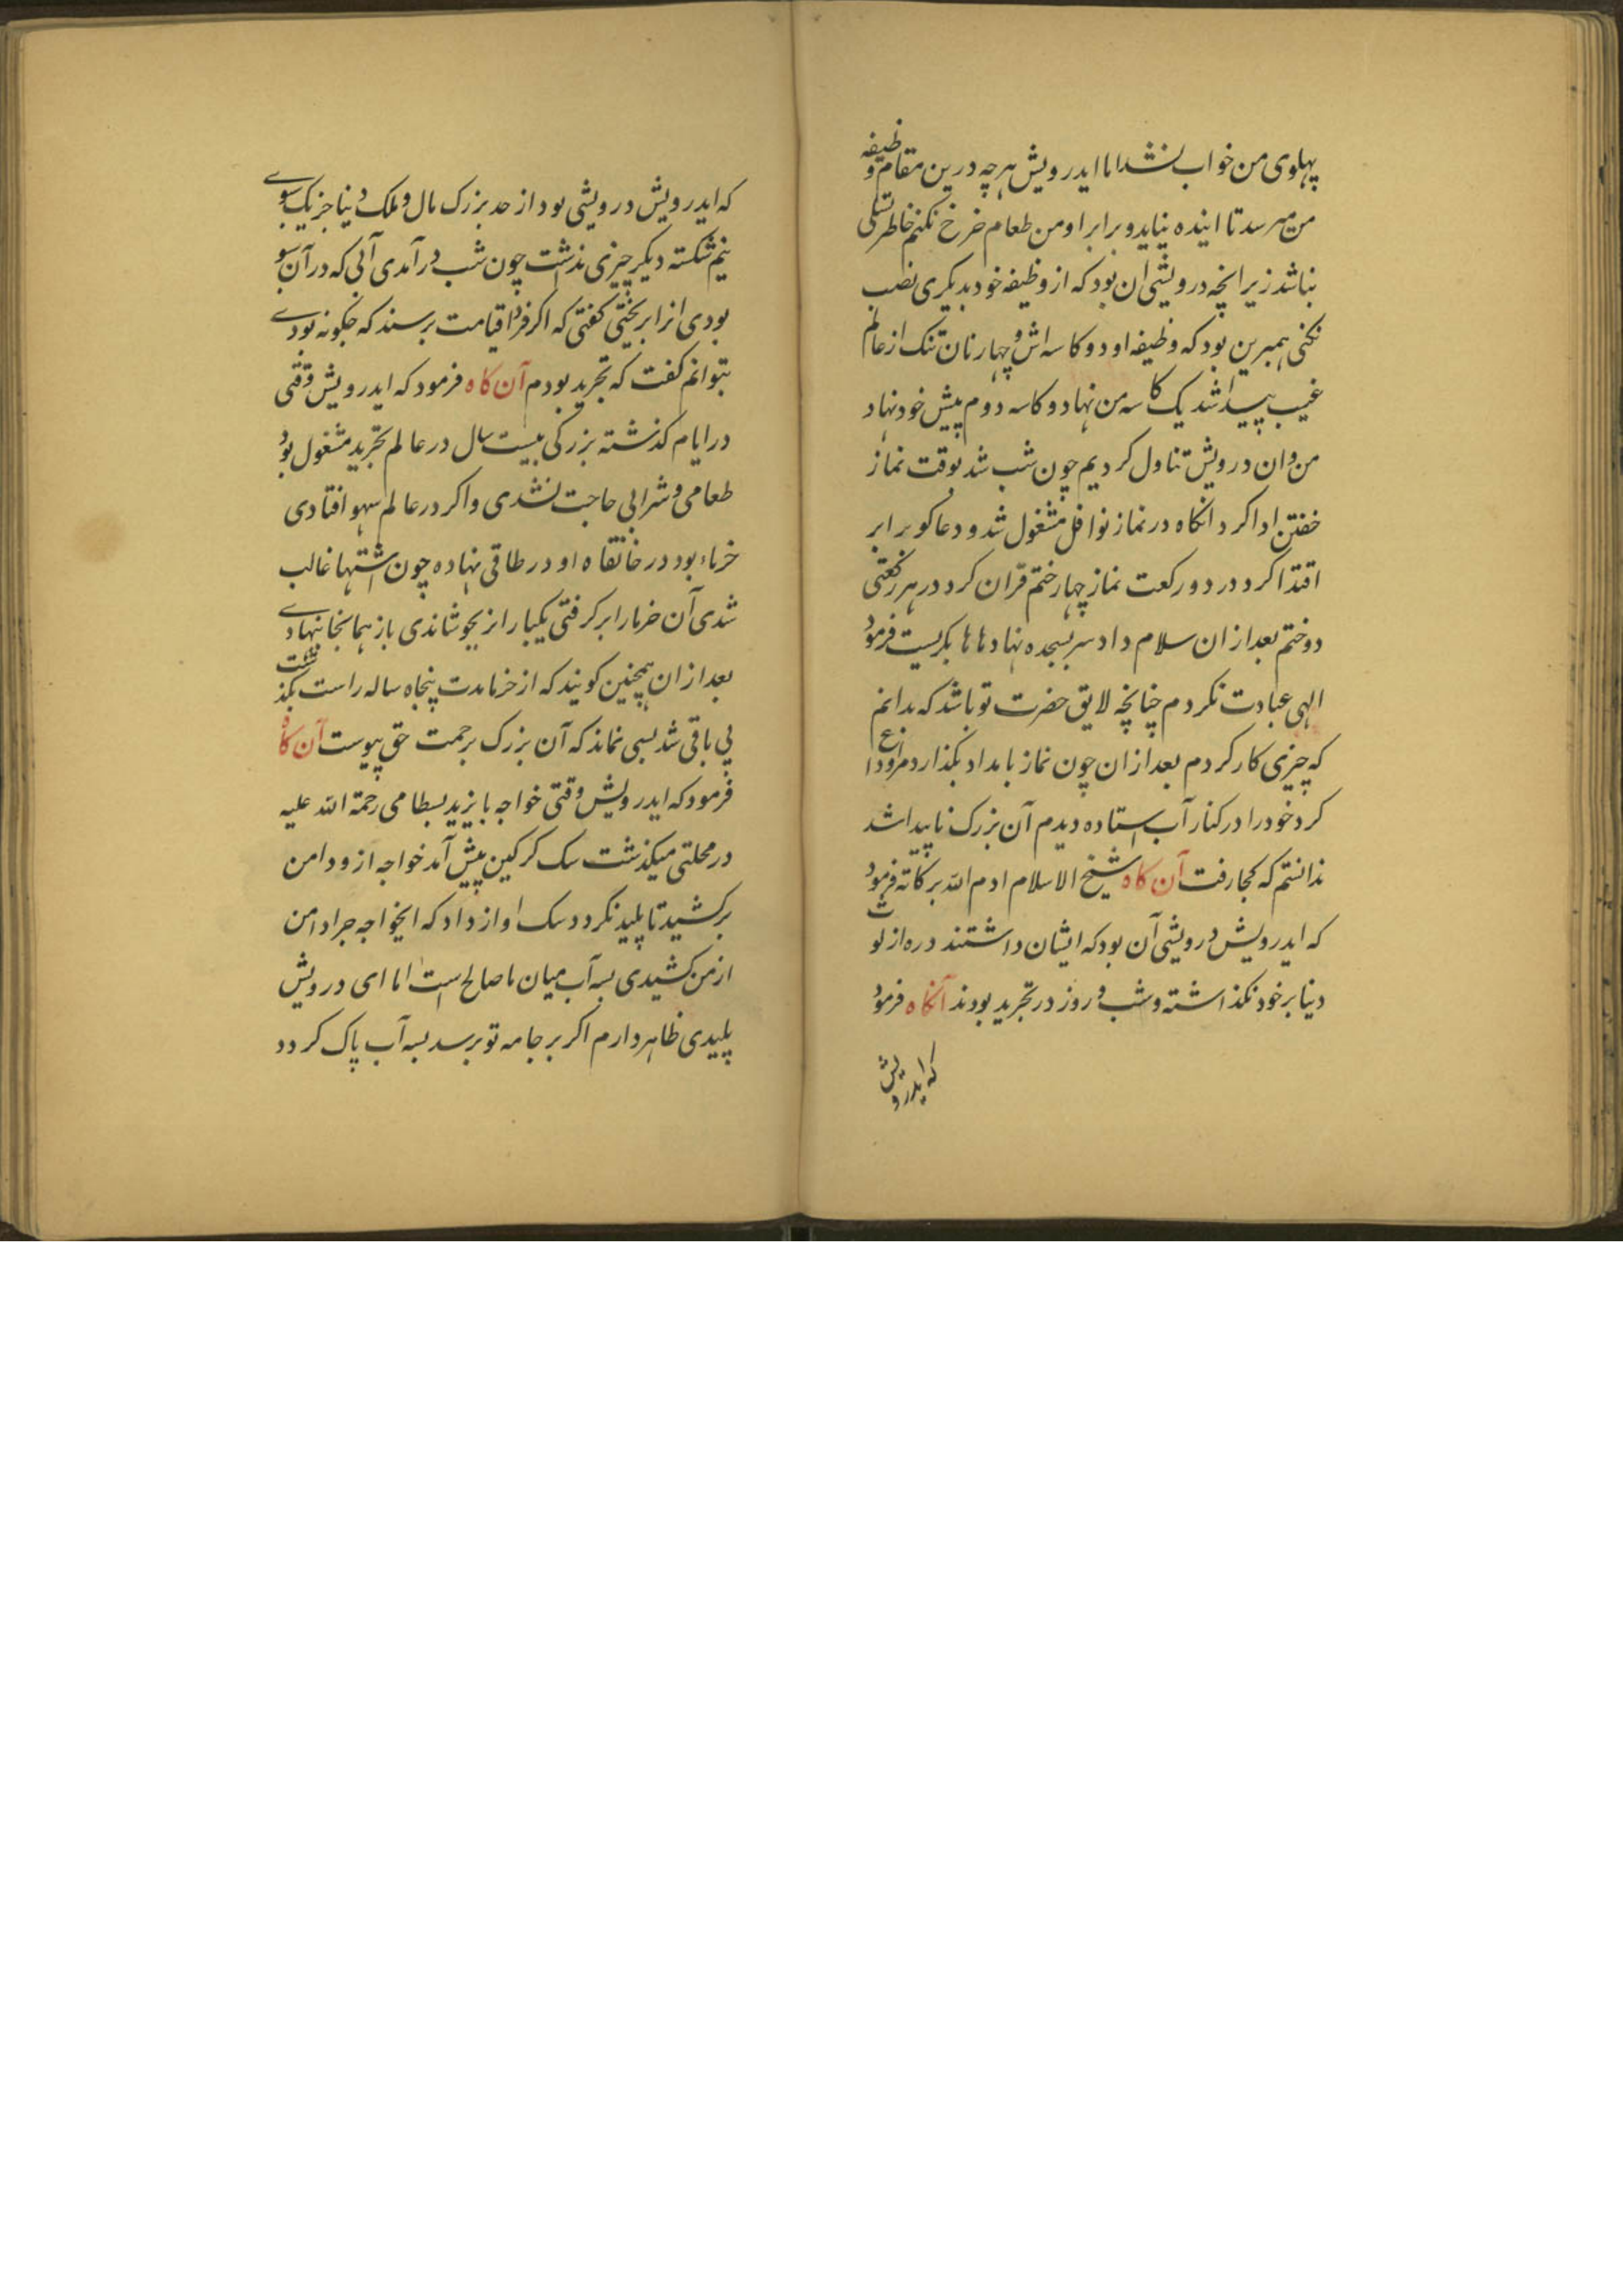 پهلوی من خواب نشد اما ایدرویش هر چه درین مقام وظیفه
من میرسد تا اینده نیاید و برابر او من طعام خرخ نکنم خاطر تسلی
نباشد زیرا نچه درویشی ان بود که از وظیفه خود بدیکری نصب
نکنی همبرین بود که وظیفه او دو کاسه اش و چهار نان تنک از عالم
غیب پیدا شد یک کاسه من نهاد و کاسه دوم پیش خود نهاد
من و ان درویش تناول کردیم چون شب شد بوقت نماز
خفتن ادا کرد انکاه در نماز نوافل مشغول شد و دعاکو برابر
اقتدا کرد در دو رکعت نماز چهار ختم قرآن کرد در هر رکعتی
دو ختم بعد ازان سلام داد سر بسجده نهاد هاها بکریست فرمود
الهی عبادت نکردم چنانچه لایق حضرت تو باشد که بدانم
که چیزی کار کردم بعد ازان چون نماز بامداد بکذارد مرا وداع
کرد خود را در کنار آب استاده دیدم آن بزرک ناپیدا شد
ندانستم که کجا رفت آن کاه شیخ الاسلام ادم الله برکاته فرمود
که ایدرویش درویشی آن بود که ایشان داشتند دره از لوث
دنیا بر خود نکذاشته و شب و روز در تجرید بودند آنکاه فرمود
که ایدرویش
که ایدرویش درویشی بود از حد بزرک مال و ملک دنیا جز یک سبوے
نیم شکسته دیکر چیزی نداشت چون شب درآمدی آبی که در آن سبو
بودی انرا بریختی کفتی که اکر فردا قیامت برسند که چکونه بودے
بتوانم کفت که تجرید بودم آن کاه فرمود که ایدرویش وقتی
در ایام کذشته بزرکی بیست سال در عالم تجرید مشغول بود
طعامی و شرابی حاجت نشدی و اکر در عالم سهو افتادی
خرماء بود در خانقاه او در طاقی نهاده چون اشتها غالب
شدی آن خرما را بر کرفتی یکبار انرا بجوشاندی باز همانجا نهادے
بعد ازان همچنین کویند که از خرما مدت پنجاه ساله راست بکذشت
پی باقی شد بسی نماند که آن بزرک برحمت حق پیوست آن کاه
فرمود که ایدرویش وقتی خواجه بایزید بسطامی رحمة الله علیه
در محلتی میکذشت سک کرکین پیش آمد خواجه ازو دامن
برکشید تا پلید نکردد سک اواز داد که ایخواجه چرا دامن
از من کشیدی بسه آب میان ما صالح است اما ای درویش
پلیدی ظاهر دارم اکر بر جامه تو برسد بسه آب پاک کردد